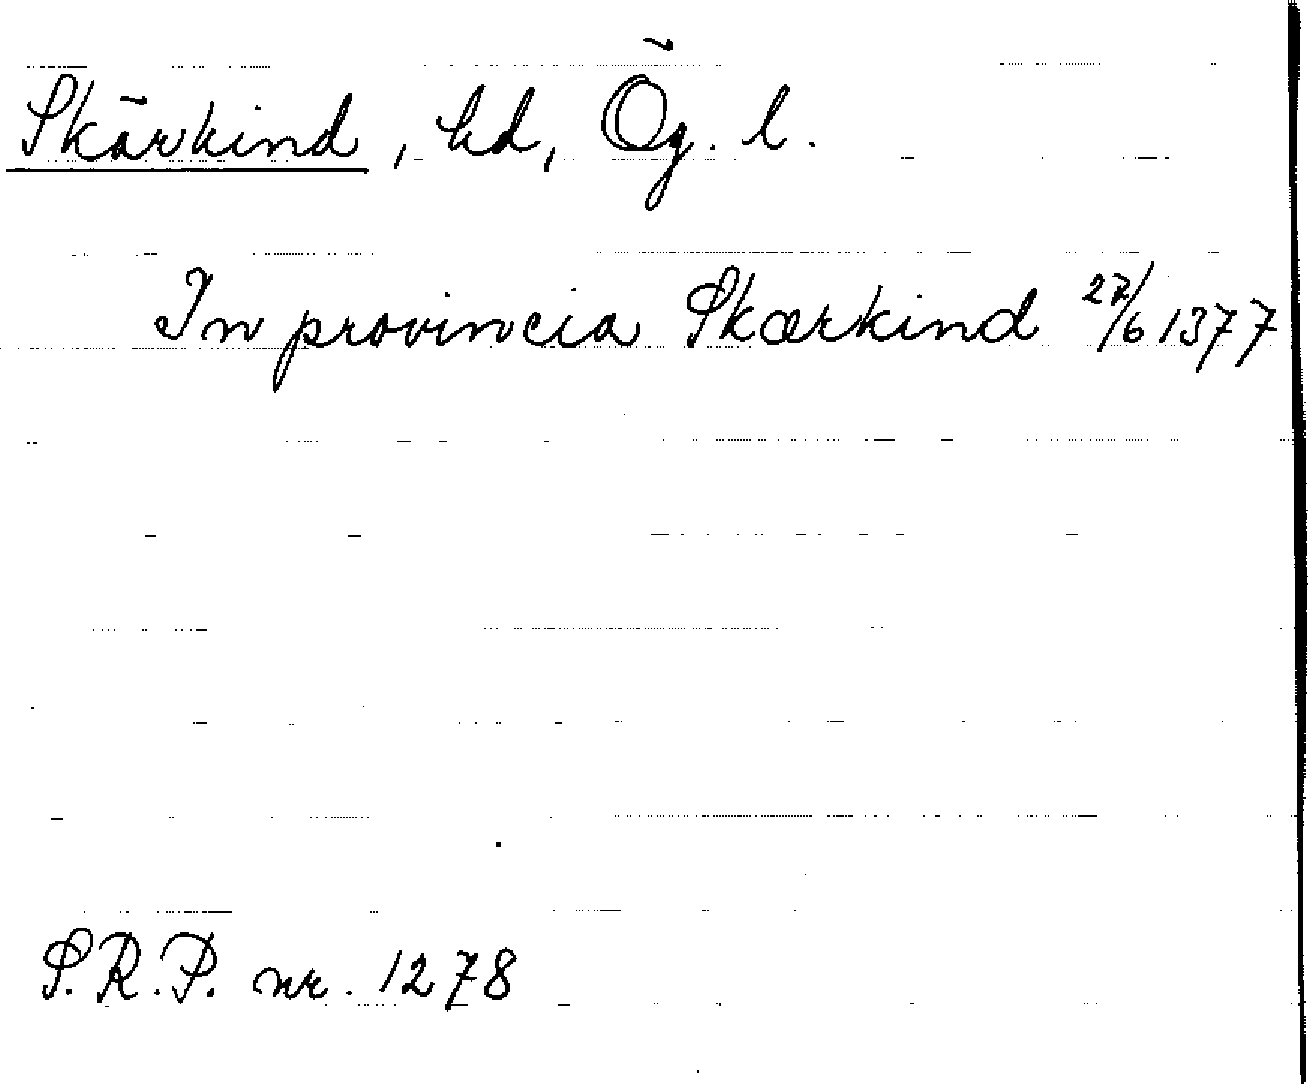 Skärkind, hd, Ög. l.
In provincia Skærkind 27/6 1377
S.R.P. nr. 1278